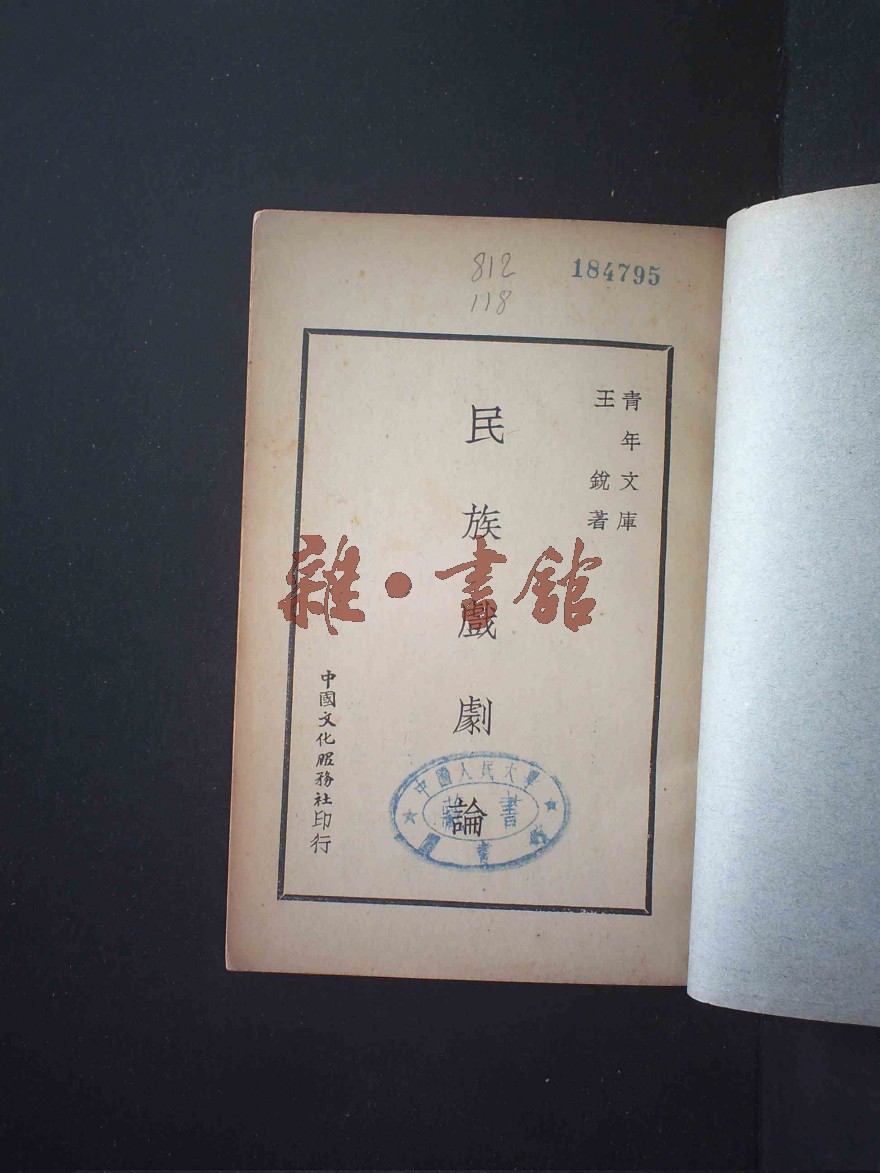 812
118
184795
青年文庫
王銳著
民族戲劇論
中國文化服務社印行
中國人民大學
藏書
圖書館
雜·書館